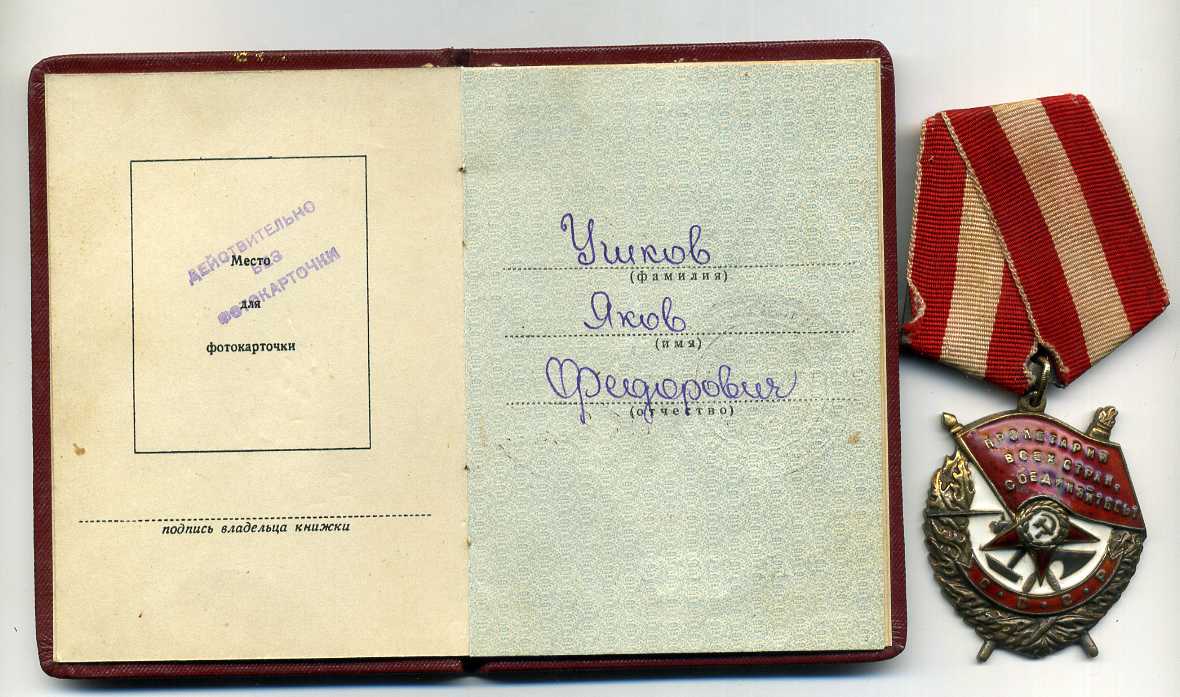 ДЕЙСТВИТЕЛЬНО
БЕЗ
ФОТОКАРТОЧКИ
Место
для
фотокарточки
подпись владельца книжки
Ушков
(фамилия)
Яков
(имя)
Федорович
(отчество)
ПРОЛЕТАРИИ
ВСЕХ СТРАН,
СОЕДИНЯЙТЕСЬ!
СССР